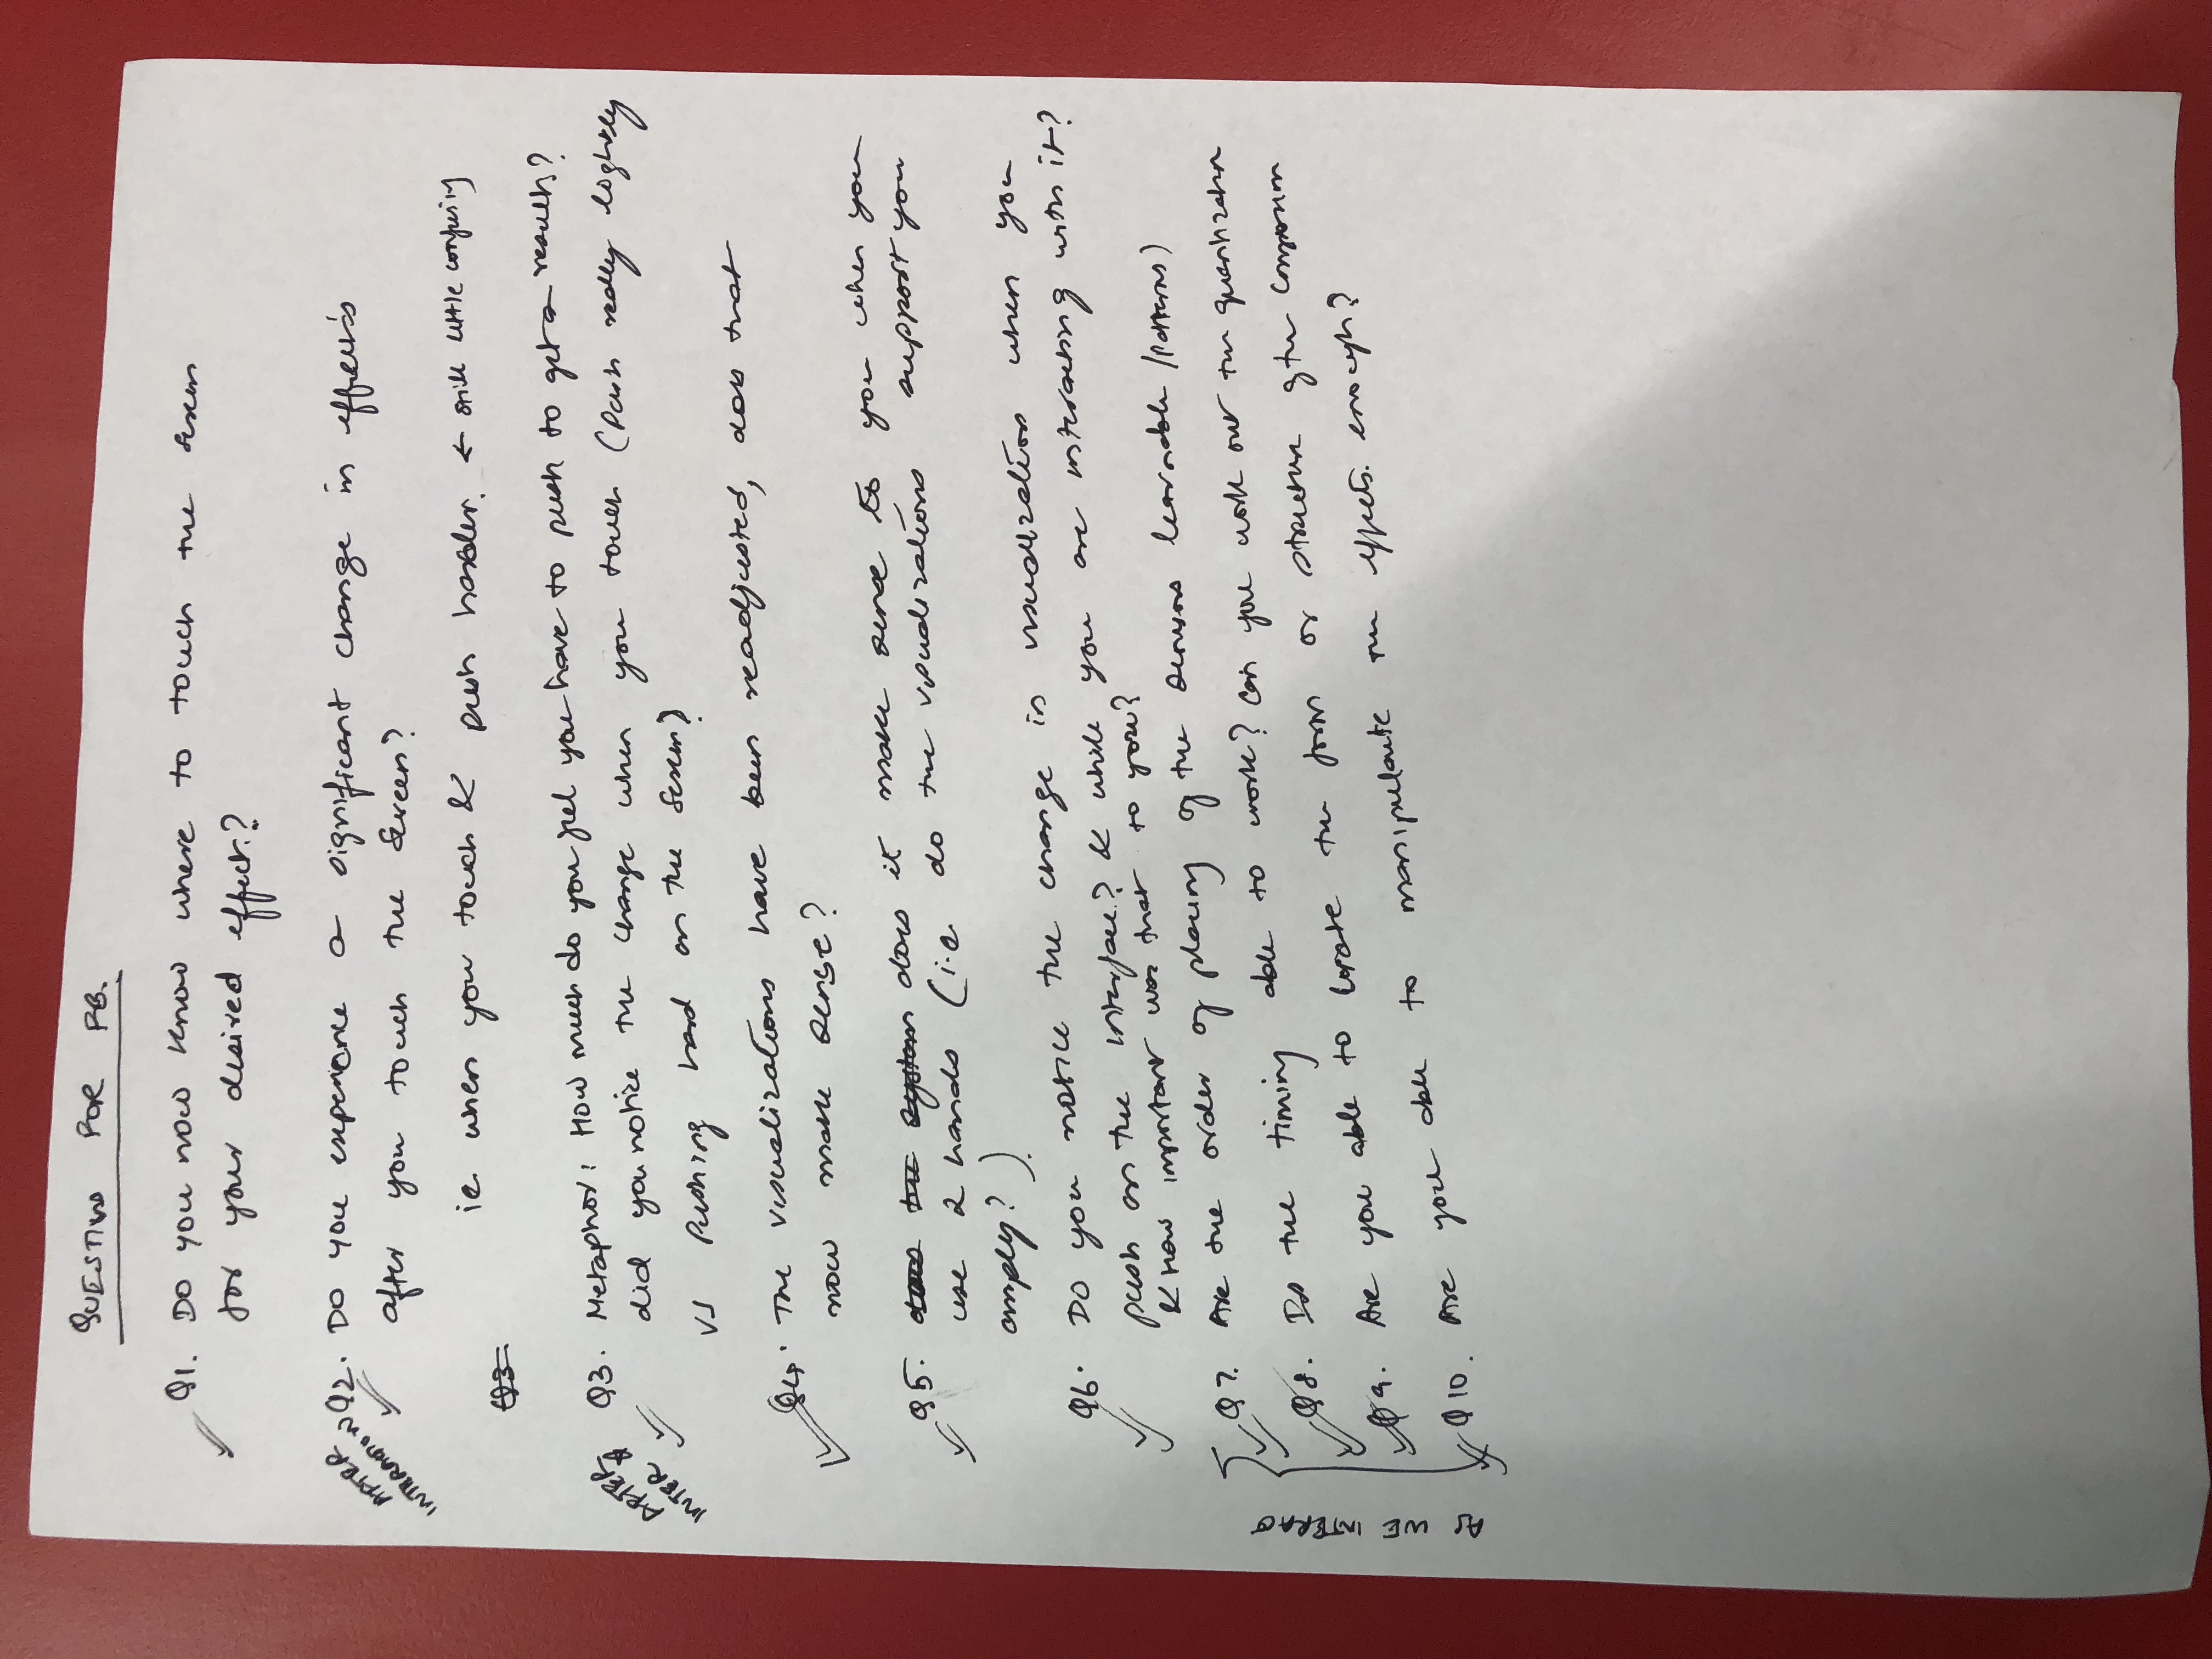 QUESTIONS FOR FB.
Q1. Do you now know where to touch the screen
for your desired effect.?
AFTER
INTERACTION
Q2. Do you experience a significant change in effects
after you touch the screen?
ie. when you touch & push harder. ← still little confusing
Q3
AFTER
INTER
Q3. Metaphor: How much do you feel you have to push to get a result?
did you notice the change when you touch (Push really lightly
vs Pushing hard on the screen?
Q4. The visualizations have been readjusted, does that
now make sense?
Q5. does the system does it make sense to you when you
use 2 hands (i.e. do the visualizations support you
amply?).
Q6. Do you notice the change in visualization when you
push on the interface? & while you are interacting with it?
& How important was that to you?
AS WE INTERACT
Q7. Are the order of placing of the sensors learnable /Patterns)
Q8. Is the timing able to work? Can you work out the quantization
Q9. Are you able to locate the form or structure of the composition
Q10. Are you able to manipulate the effects. enough?